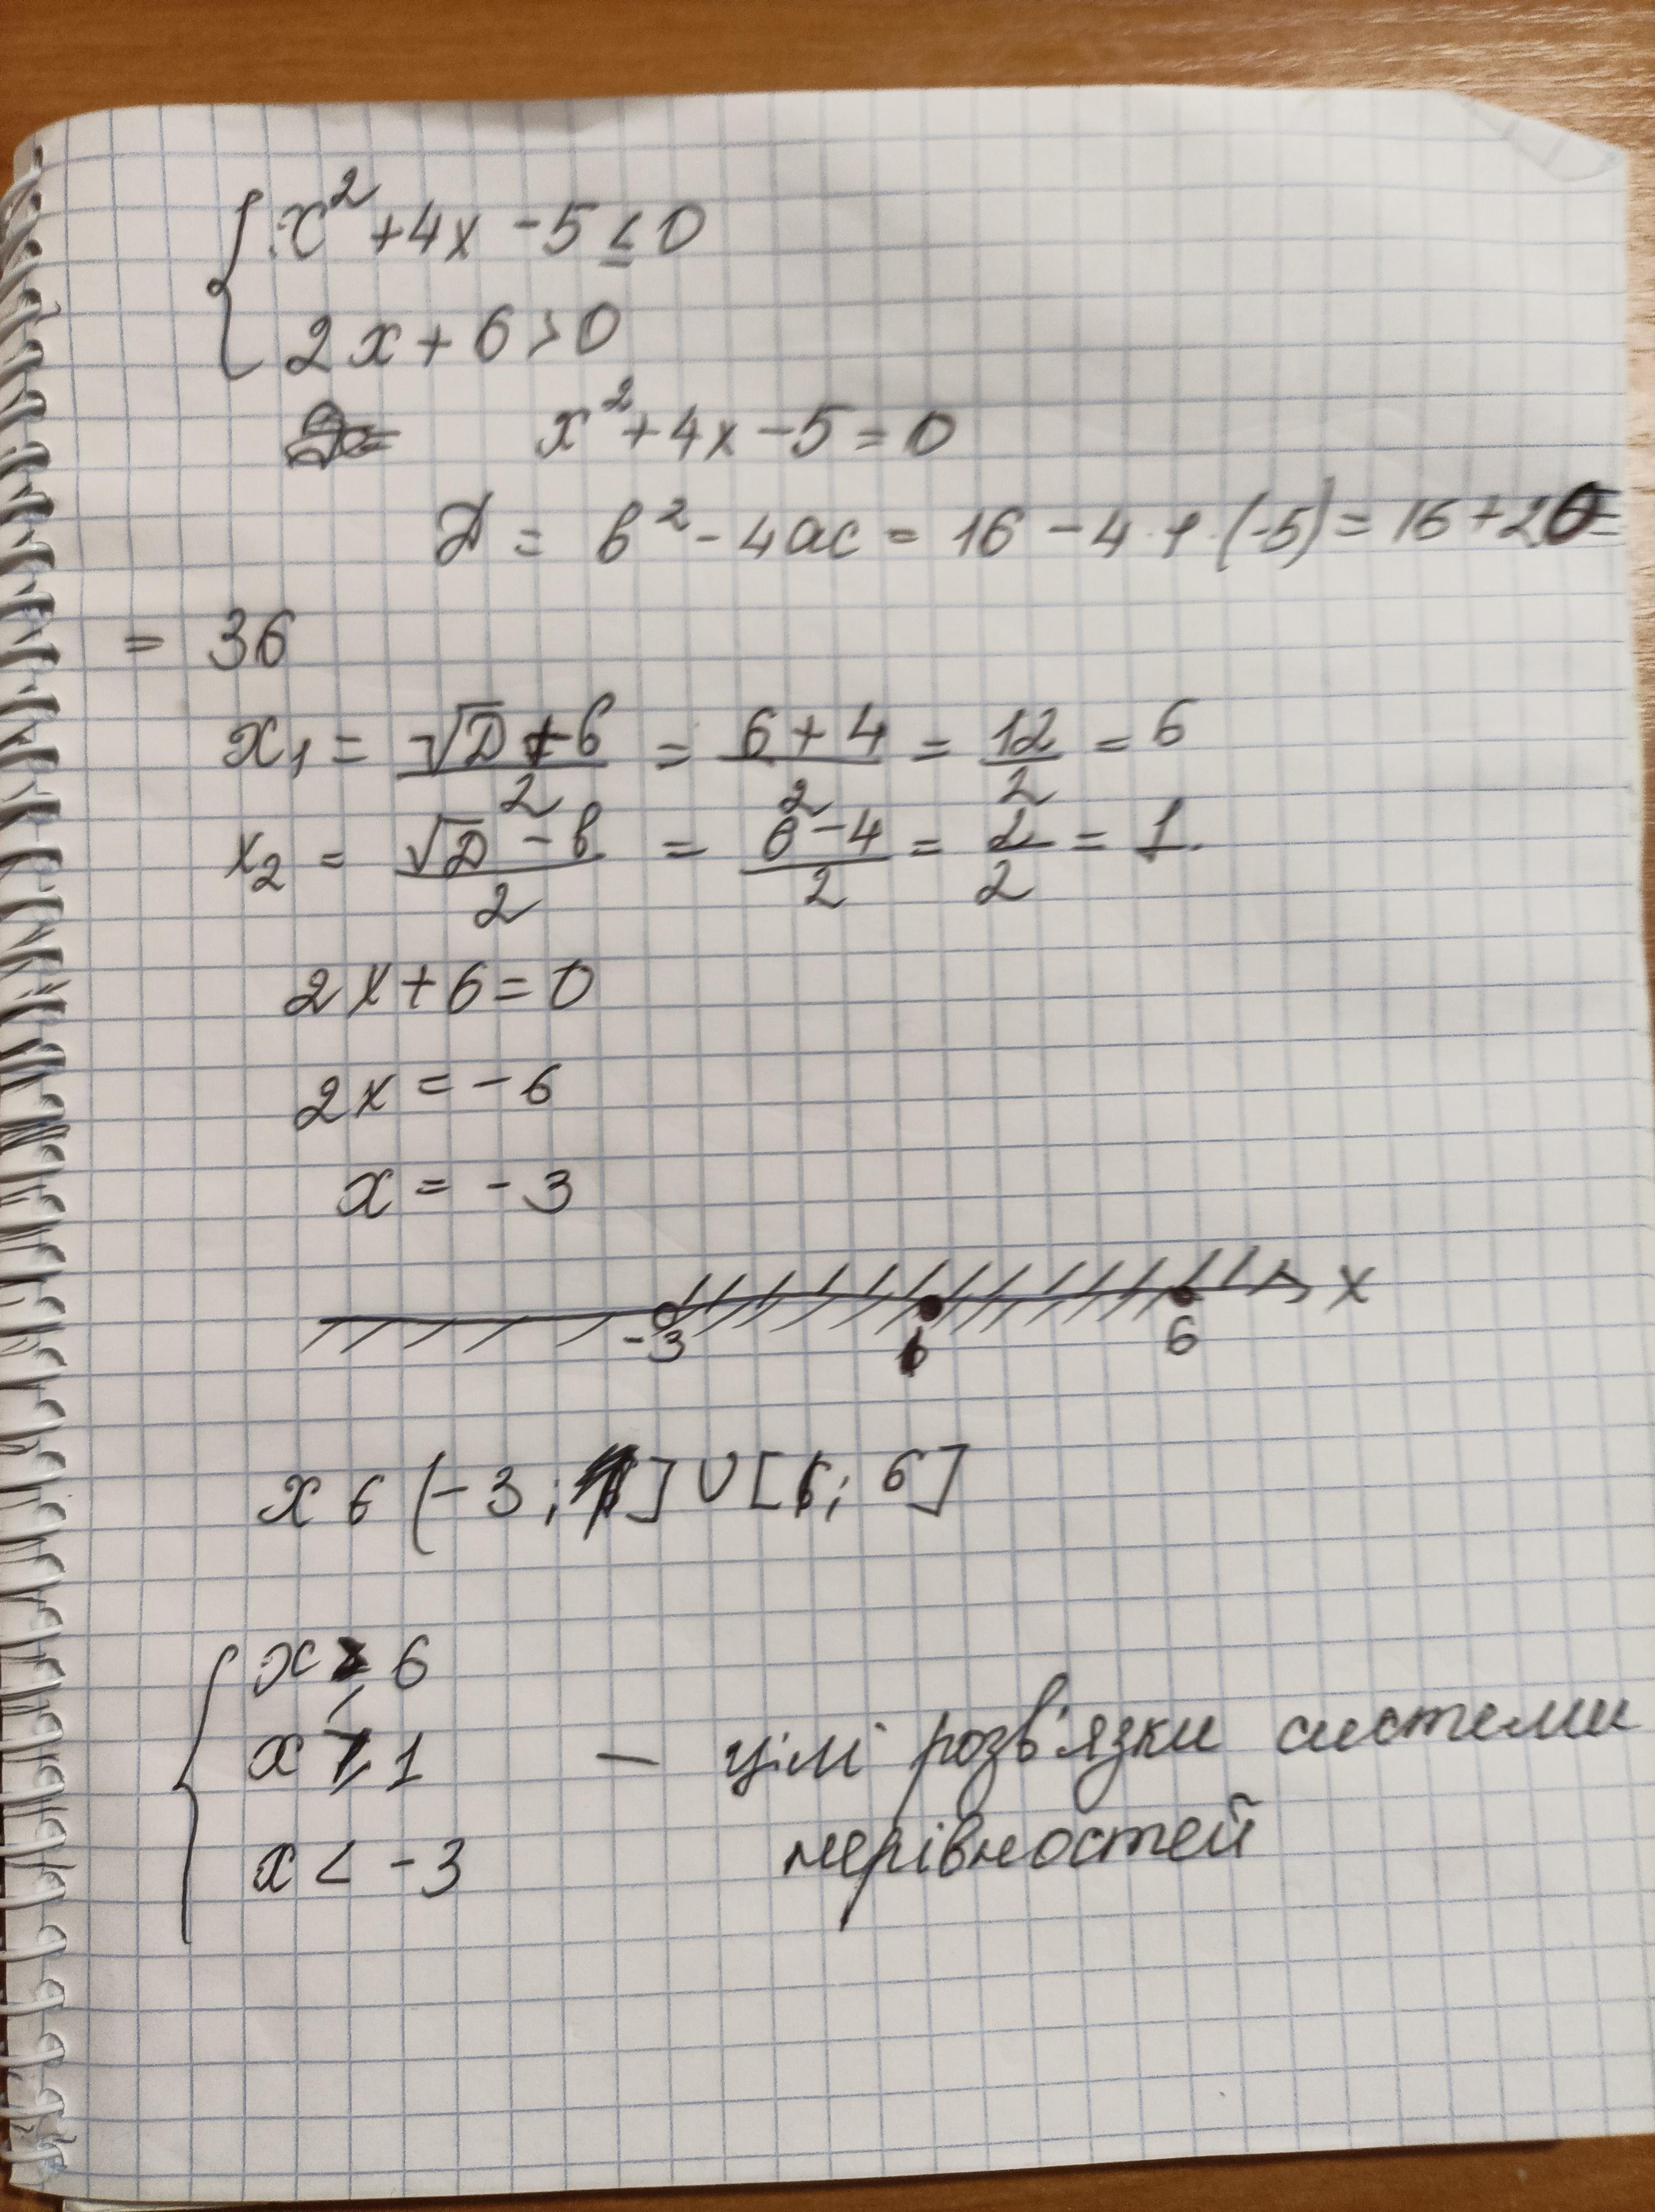 { x² + 4x - 5 ≤ 0
2x + 6 > 0
x² + 4x - 5 = 0
D = b² - 4ac = 16 - 4 · 1 · (-5) = 16 + 20 =
= 36
x₁ = (√D + b)/2 = (6 + 4)/2 = 12/2 = 6
x₂ = (√D - b)/2 = (6 - 4)/2 = 2/2 = 1.
2x + 6 = 0
2x = -6
x = -3
-3 1 6 x
x ∈ (-3; 1] ∪ [1; 6]
{ x ≥ 6
x ≥ 1 — цілі розв'язки системи
нерівностей
x < -3